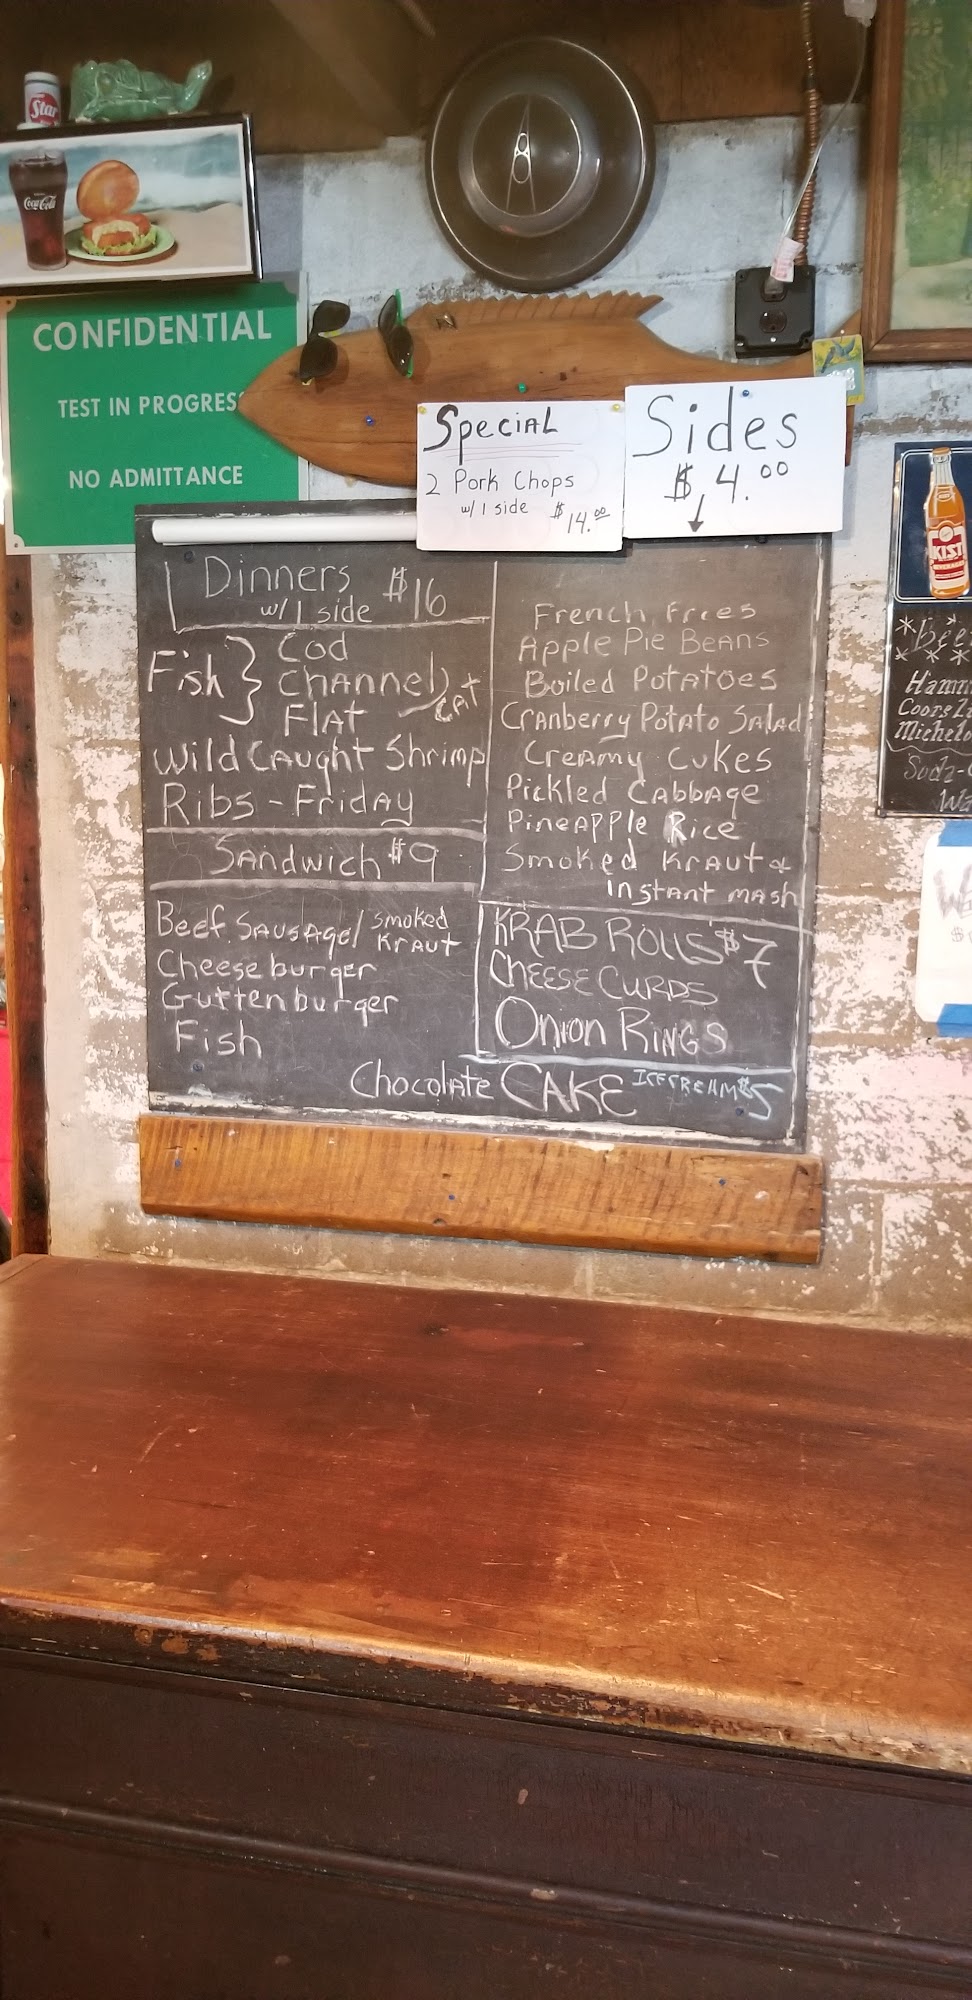 Star
Coca-Cola
CONFIDENTIAL
TEST IN PROGRESS
NO ADMITTANCE
Special
2 Pork Chops
w/ 1 side $14.00
Sides
$4.00
Dinners $16
w/ 1 side
Fish } Cod
Channel Cat
Flat
Wild Caught Shrimp
Ribs - Friday
Sandwich $9
Beef Sausage/ Smoked Kraut
Cheeseburger
Guttenburger
Fish
French Fries
Apple Pie Beans
Boiled Potatoes
Cranberry Potato Salad
Creamy Cukes
Pickled Cabbage
Pineapple Rice
Smoked Kraut &
instant mash
KRAB ROLLS $7
CHEESE CURDS
ONION RINGS
Chocolate CAKE ICE CREAM $5
KIST
BEVERAGES
Hamm
Coors
Michelo
Soda